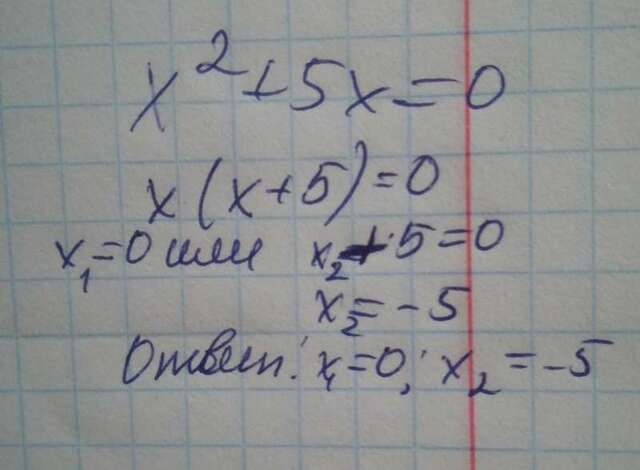 x²+5x=0
x(x+5)=0
x₁=0 или x₂+5=0
x₂=-5
Ответ: x₁=0; x₂=-5